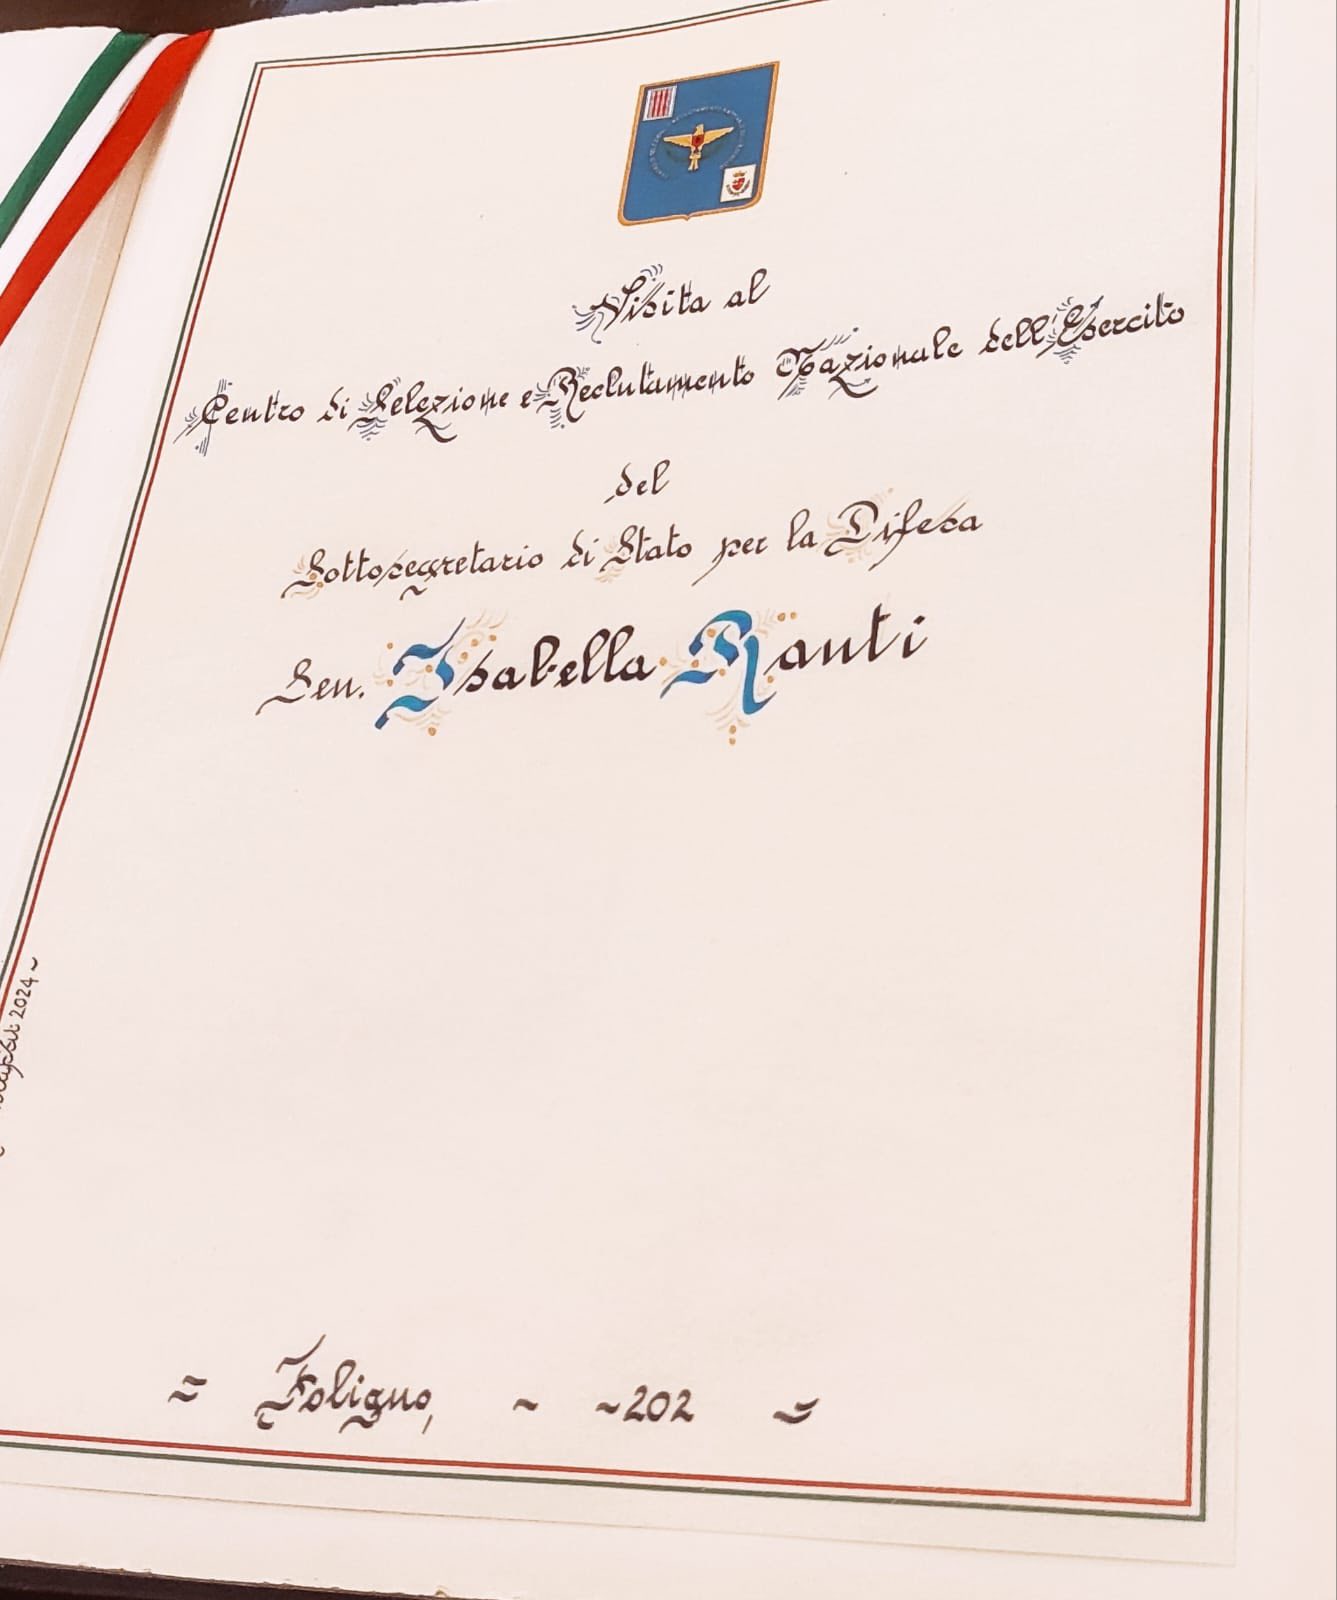 Visita al
Centro di Selezione e Reclutamento Nazionale dell'Esercito
del
Sottosegretario di Stato per la Difesa
Sen. Isabella Rauti
2024 ~
= Foligno, ~ ~202 =